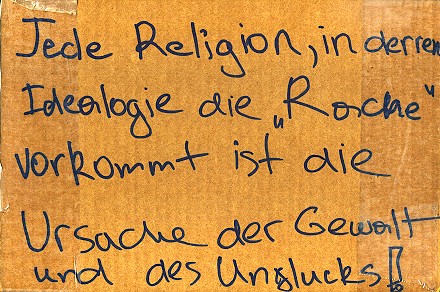 Jede Religion, in derren
Ideologie die „Rache"
vorkommt ist die
Ursache der Gewalt
und des Unglucks!